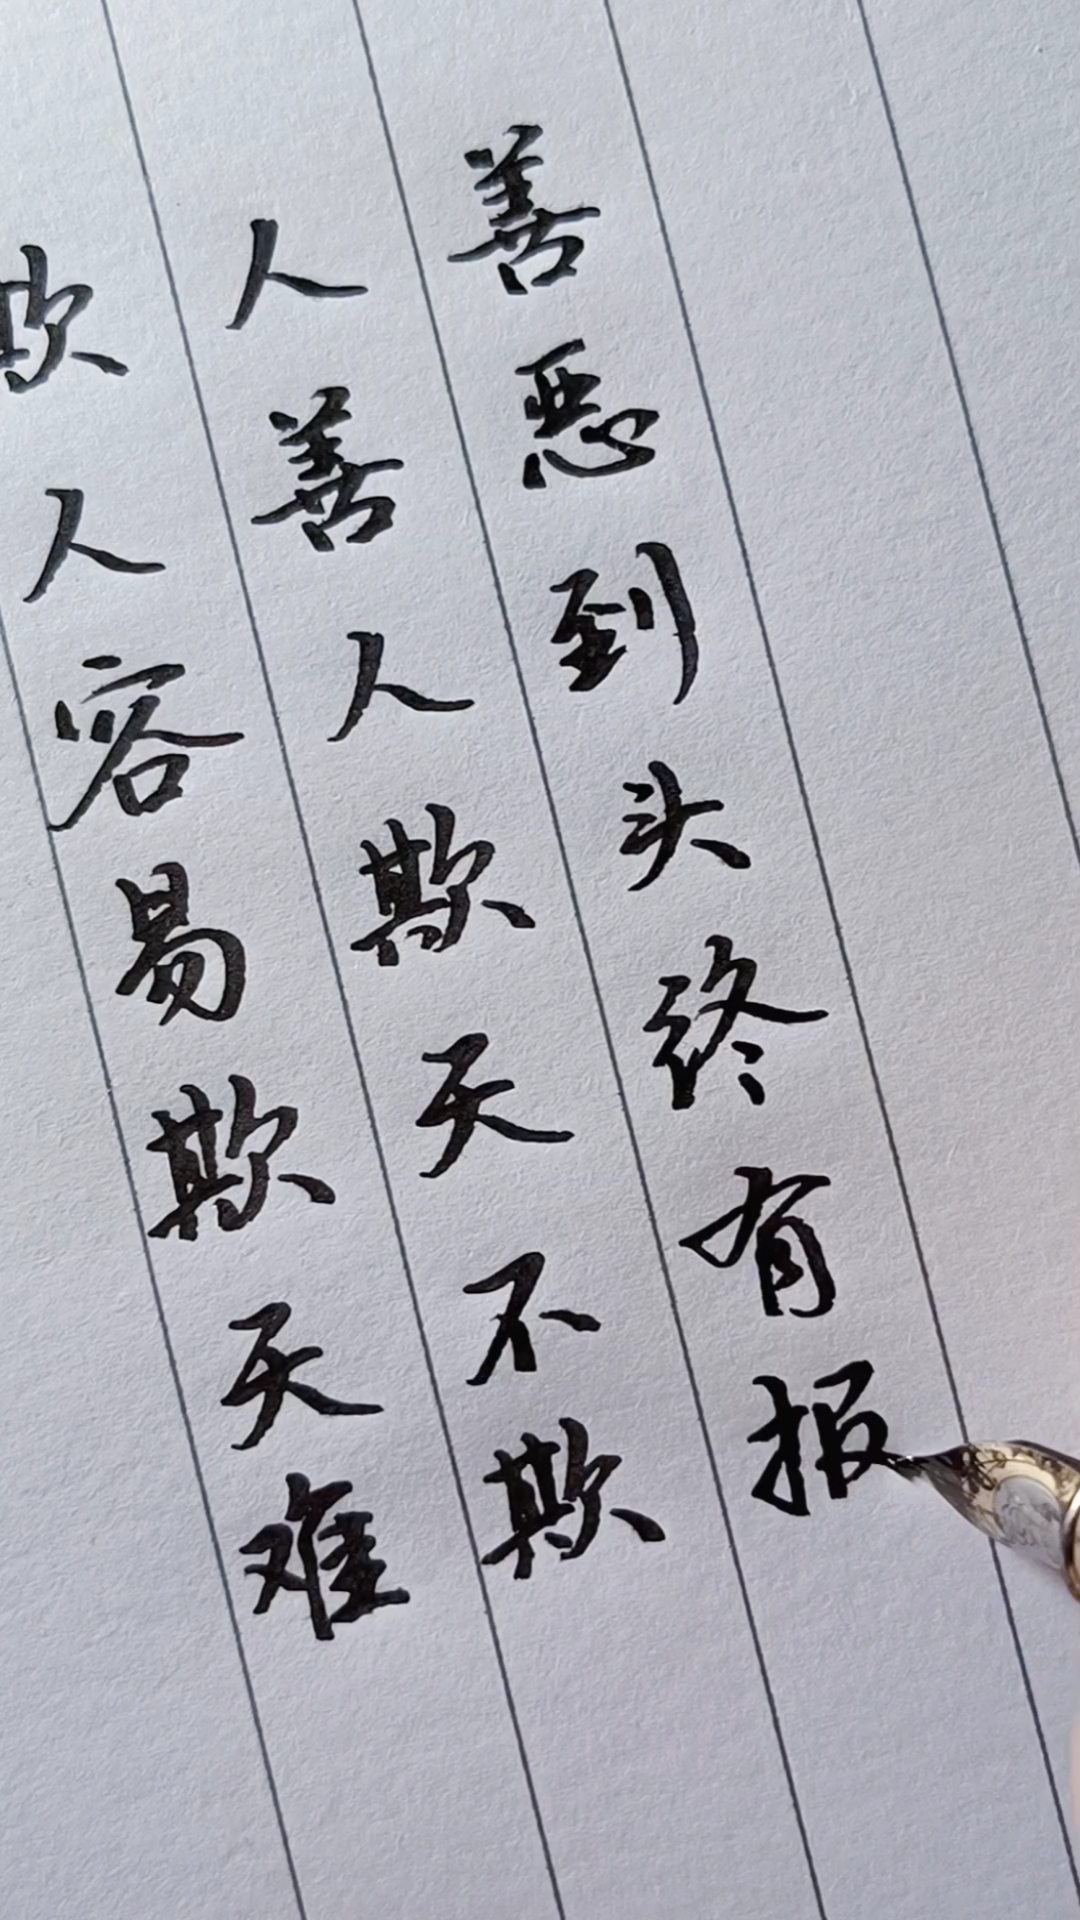 欺人容易欺天难
人善人欺天不欺
善恶到头终有报